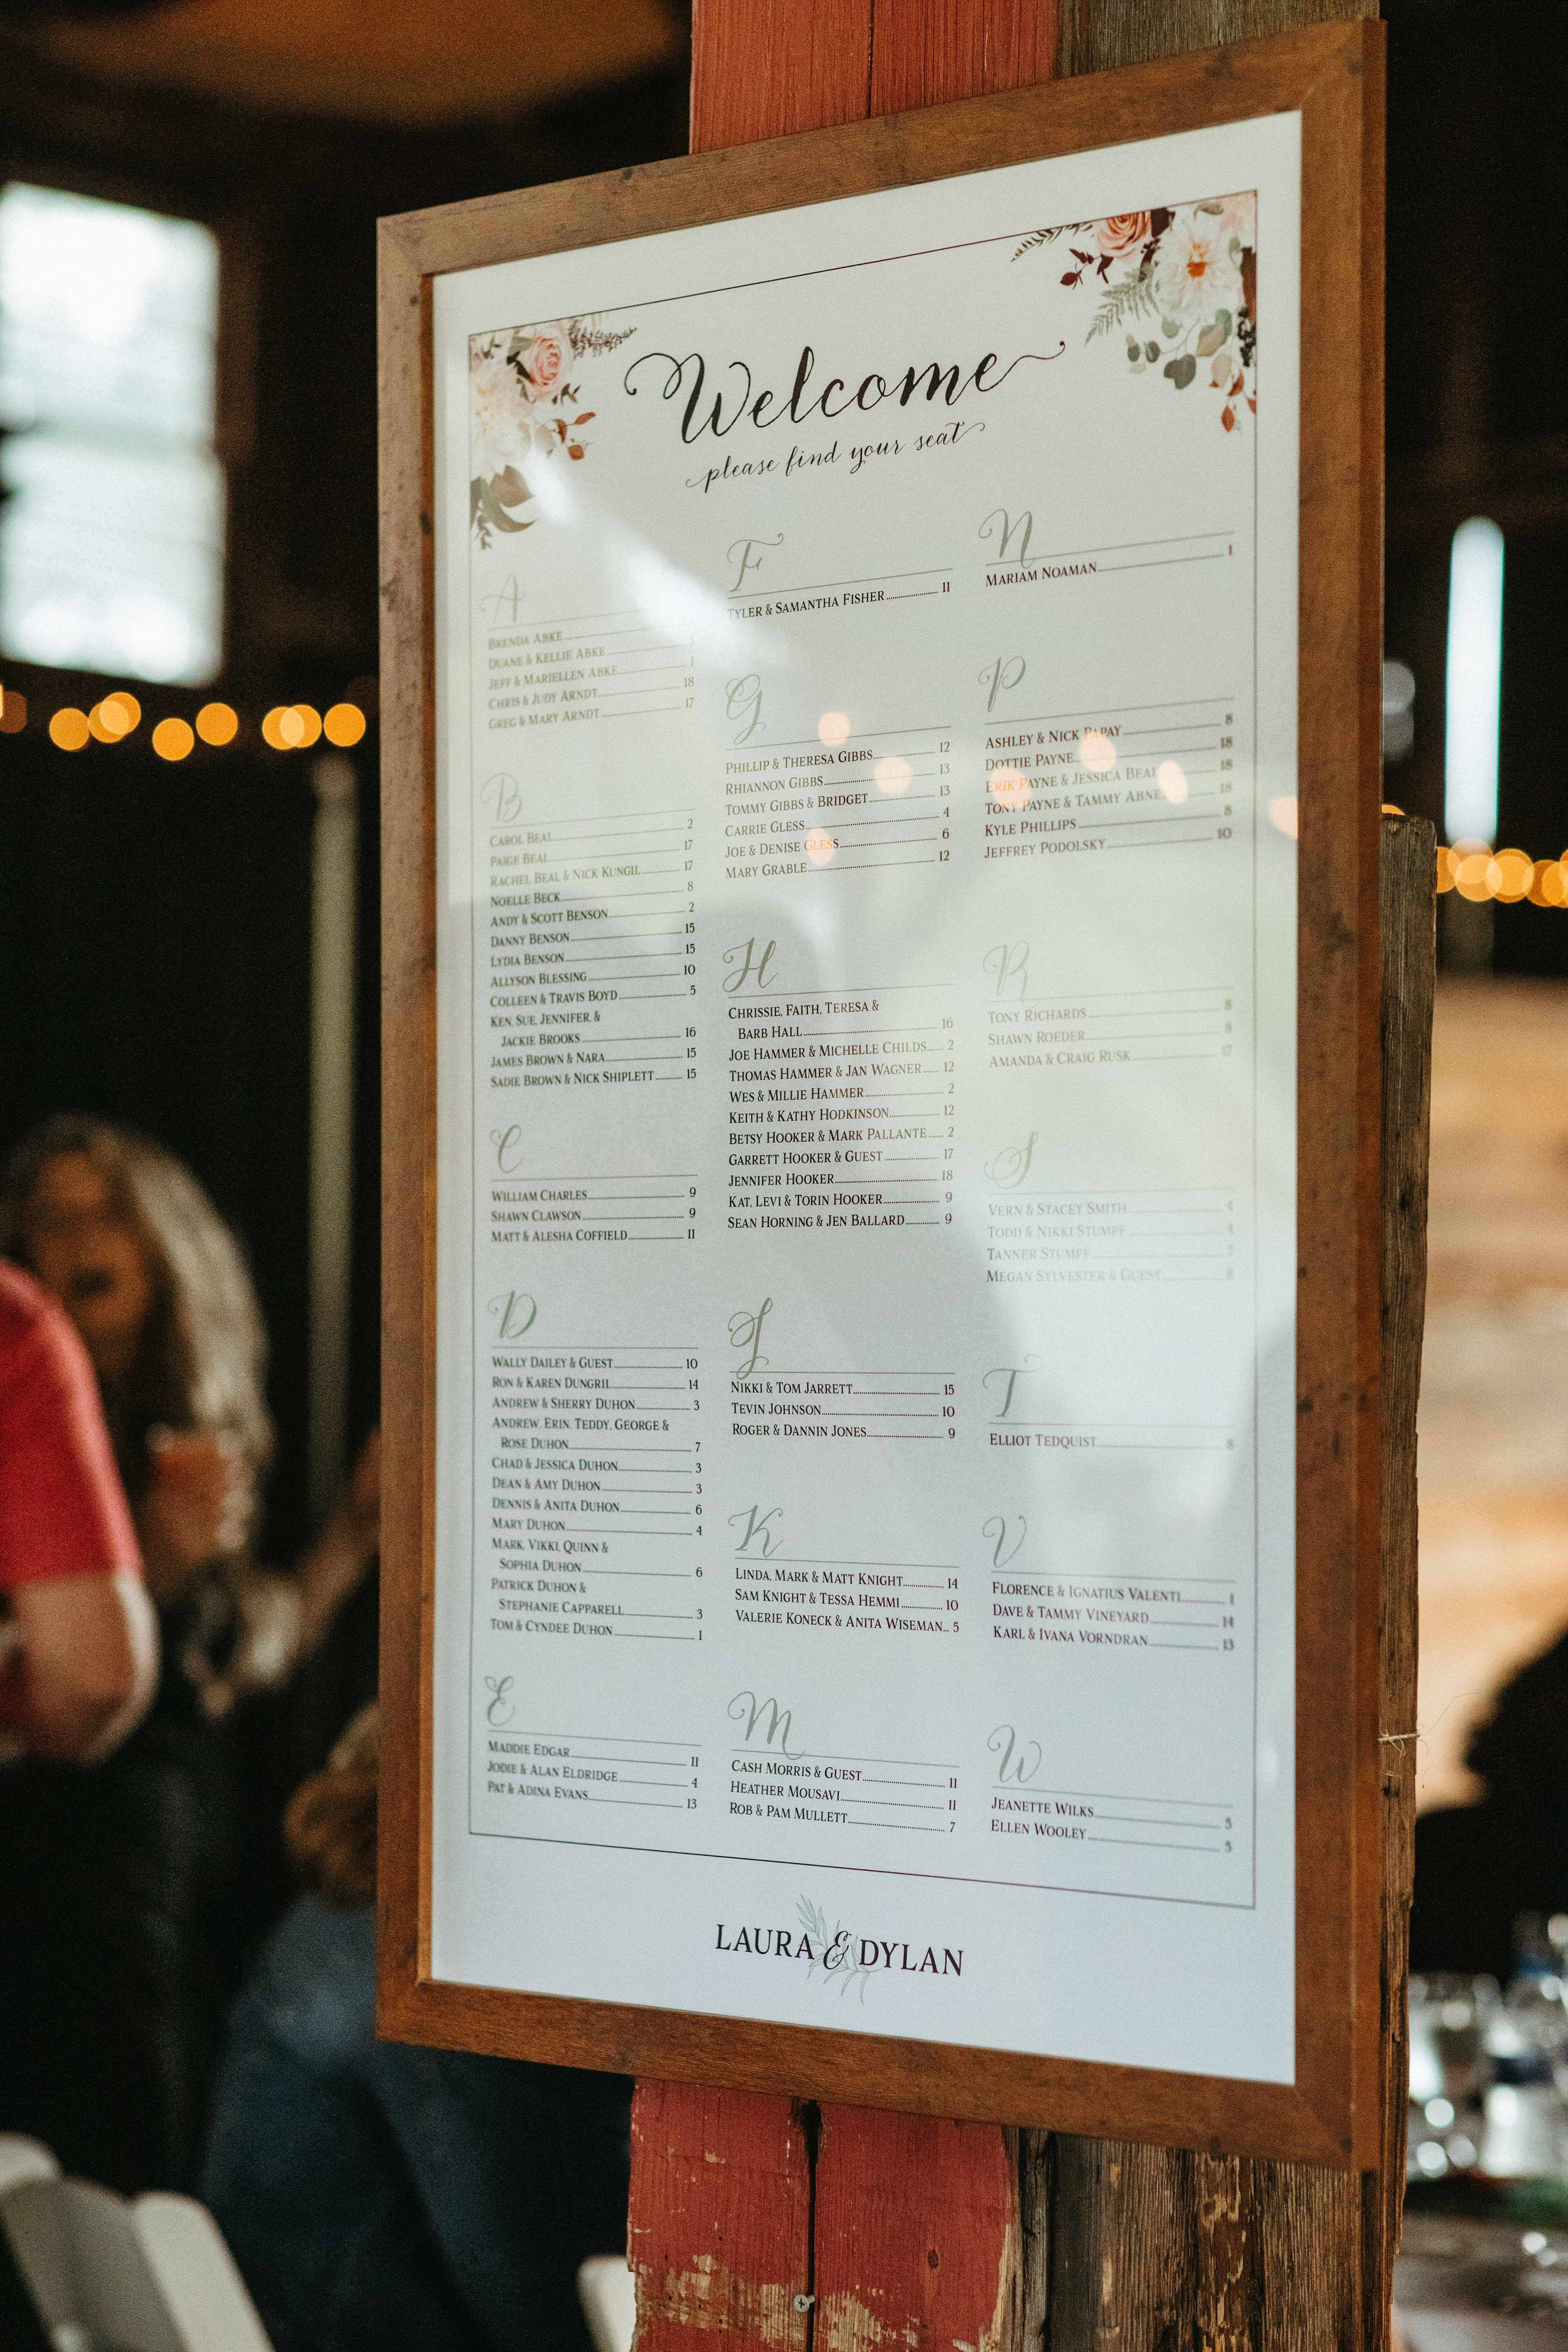 Welcome
please find your seat
A
BRENDA ABKE
DUANE & KELLIE ABKE
JEFF & MARIELLEN ABKE 1
CHRIS & JUDY ARNDT 18
GREG & MARY ARNDT 17
B
CAROL BEAL 2
PAIGE BEAL 17
RACHEL BEAL & NICK KUNGIL 17
NOELLE BECK 8
ANDY & SCOTT BENSON 2
DANNY BENSON 15
LYDIA BENSON 15
ALLYSON BLESSING 10
COLLEEN & TRAVIS BOYD 5
KEN, SUE, JENNIFER, &
JACKIE BROOKS 16
JAMES BROWN & NARA 15
SADIE BROWN & NICK SHIPLETT 15
C
WILLIAM CHARLES 9
SHAWN CLAWSON 9
MATT & ALESHA COFFIELD 11
D
WALLY DAILEY & GUEST 10
RON & KAREN DUNGRIL 14
ANDREW & SHERRY DUHON 3
ANDREW, ERIN, TEDDY, GEORGE &
ROSE DUHON 7
CHAD & JESSICA DUHON 3
DEAN & AMY DUHON 3
DENNIS & ANITA DUHON 6
MARY DUHON 4
MARK, VIKKI, QUINN &
SOPHIA DUHON 6
PATRICK DUHON &
STEPHANIE CAPPARELL 3
TOM & CYNDEE DUHON 1
E
MADDIE EDGAR 11
JODIE & ALAN ELDRIDGE 4
PAT & ADINA EVANS 13
F
TYLER & SAMANTHA FISHER 11
G
PHILLIP & THERESA GIBBS 12
RHIANNON GIBBS 13
TOMMY GIBBS & BRIDGET 13
CARRIE GLESS 4
JOE & DENISE GLESS 6
MARY GRABLE 12
H
CHRISSIE, FAITH, TERESA &
BARB HALL 16
JOE HAMMER & MICHELLE CHILDS 2
THOMAS HAMMER & JAN WAGNER 12
WES & MILLIE HAMMER 2
KEITH & KATHY HODKINSON 12
BETSY HOOKER & MARK PALLANTE 2
GARRETT HOOKER & GUEST 17
JENNIFER HOOKER 18
KAT, LEVI & TORIN HOOKER 9
SEAN HORNING & JEN BALLARD 9
J
NIKKI & TOM JARRETT 15
TEVIN JOHNSON 10
ROGER & DANNIN JONES 9
K
LINDA, MARK & MATT KNIGHT 14
SAM KNIGHT & TESSA HEMMI 10
VALERIE KONECK & ANITA WISEMAN 5
M
CASH MORRIS & GUEST 11
HEATHER MOUSAVI 11
ROB & PAM MULLETT 7
N
MARIAM NOAMAN 1
P
ASHLEY & NICK PAPAY 8
DOTTIE PAYNE 18
ERIK PAYNE & JESSICA BEAL 18
TONY PAYNE & TAMMY 18
KYLE PHILLIPS 8
JEFFREY PODOLSKY 10
R
TONY RICHARDS 8
SHAWN ROEDER 8
AMANDA & CRAIG RUSK 17
S
VERN & STACEY SMITH 4
TODD & NIKKI STUMPF 4
TANNER STUMPF 7
MEGAN SYLVESTER & GUEST 8
T
ELLIOT TEDQUIST 8
V
FLORENCE & IGNATIUS VALENTI 1
DAVE & TAMMY VINEYARD 14
KARL & IVANA VORNDRAN 13
W
JEANETTE WILKS 5
ELLEN WOOLEY 5
LAURA & DYLAN